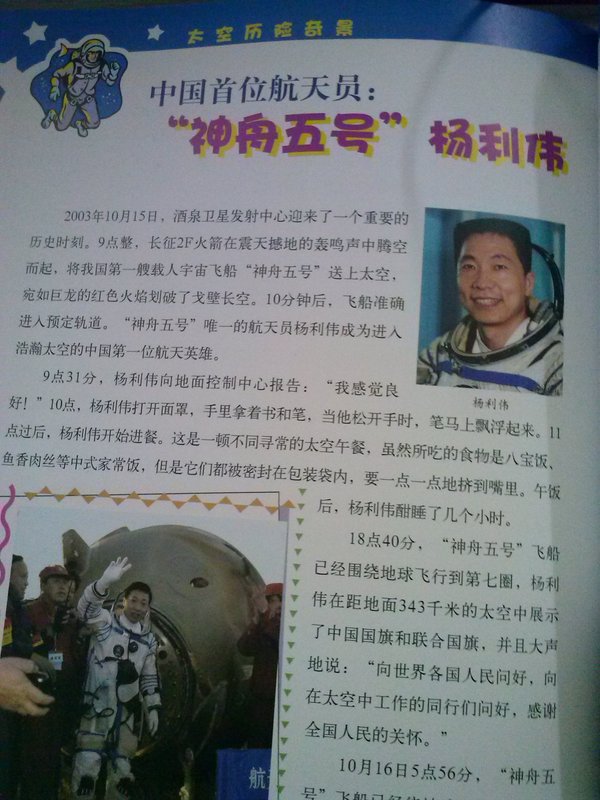 太空历险奇景
中国首位航天员：
“神舟五号”杨利伟
2003年10月15日，酒泉卫星发射中心迎来了一个重要的
历史时刻。9点整，长征2F火箭在震天撼地的轰鸣声中腾空
而起，将我国第一艘载人宇宙飞船“神舟五号”送上太空，
宛如巨龙的红色火焰划破了戈壁长空。10分钟后，飞船准确
进入预定轨道。“神舟五号”唯一的航天员杨利伟成为进入
浩瀚太空的中国第一位航天英雄。
杨利伟
9点31分，杨利伟向地面控制中心报告：“我感觉良
好！”10点，杨利伟打开面罩，手里拿着书和笔，当他松开手时，笔马上飘浮起来。11
点过后，杨利伟开始进餐。这是一顿不同寻常的太空午餐，虽然所吃的食物是八宝饭、
鱼香肉丝等中式家常饭，但是它们都被密封在包装袋内，要一点一点地挤到嘴里。午饭
后，杨利伟酣睡了几个小时。
18点40分，“神舟五号”飞船
已经围绕地球飞行到第七圈，杨利
伟在距地面343千米的太空中展示
了中国国旗和联合国旗，并且大声
地说：“向世界各国人民问好，向
在太空中工作的同行们问好，感谢
全国人民的关怀。”
10月16日5点56分，“神舟五
号”飞船已经
航